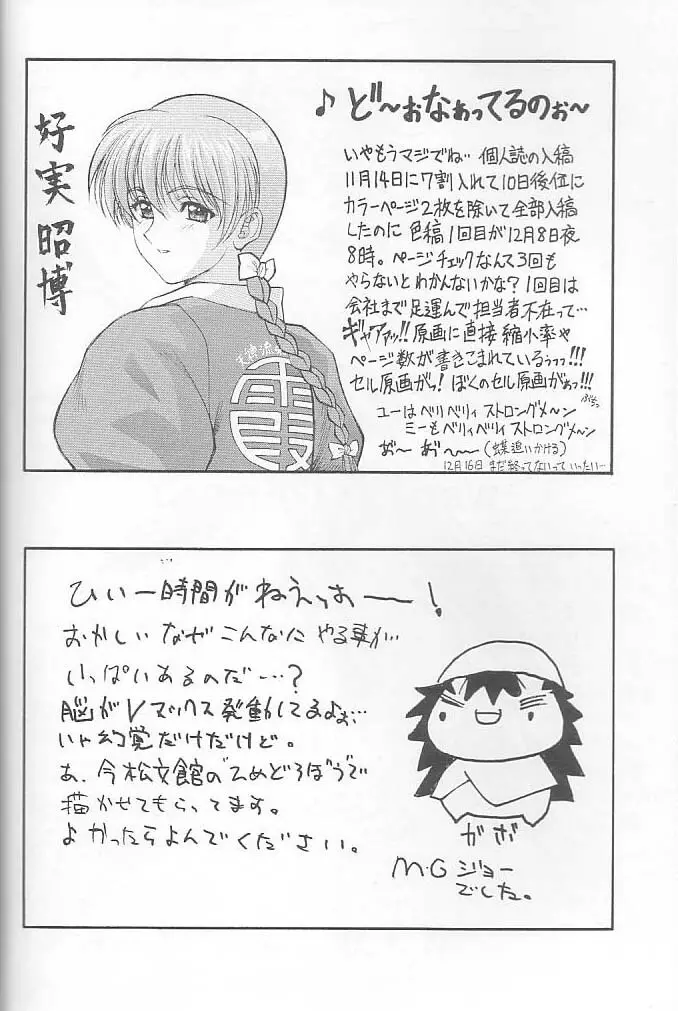 好実昭博
♪ ど〜ぉなぁってるのぉ〜
いやもうマジでね… 個人誌の入稿
11月14日に7割入れて10日後位に
カラーページ2枚を除いて全部入稿
したのに 色稿1回目が12月8日夜
8時。ページチェックなんて3回も
やらないとわかんないかな?1回目は
会社まで足運んで担当者不在って…
ギャアァッ!!原画に直接縮小率や
ページ数が書きこまれているぅっっ!!!
セル原画がっ! ぼくのセル原画がぁっ!!!
ユーはベリベリィ ストロングメ〜ン
ミーもベリィベリィ ストロングメ〜ン
お〜 お〜〜〜 (蝶追いかける)
12月16日 まだ終ってないって いったい…
天地流
霞
ひぃー時間がねえっおーー!
おかしい なぜこんなに やる事が…
いっぱいあるのだ…?
脳がVマックス発動してるよぉ…
いや幻覚だけだけど。
あ、今松文館の"ひめどろぼう"で
描かせてもらってます。
よかったらよんでください。
がお
M・G ジョー
でした。